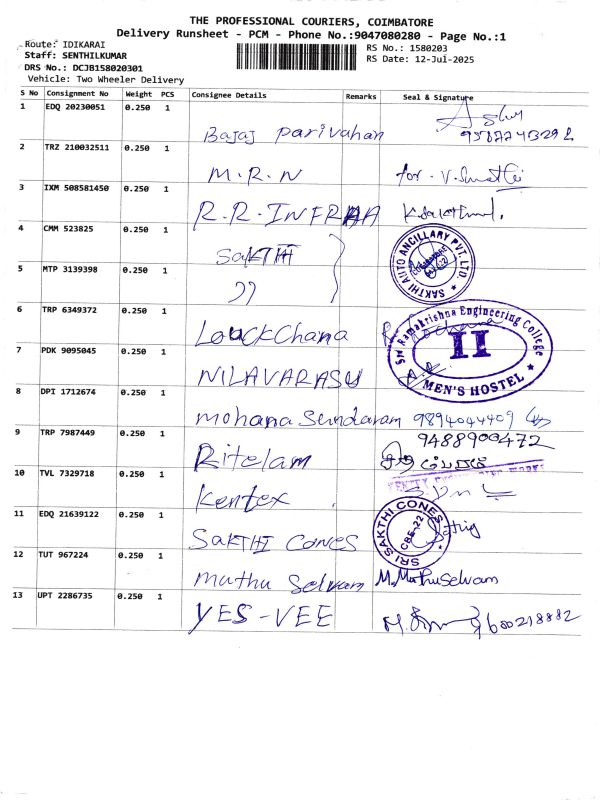 THE PROFESSIONAL COURIERS, COIMBATORE
Delivery Runsheet - PCM - Phone No.:9047080280 - Page No.:1
Route: IDIKARAI
RS No.: 1580203
Staff: SENTHILKUMAR
RS Date: 12-Jul-2025
DRS No.: DCJB158020301
Vehicle: Two Wheeler Delivery
S No Consignment No Weight PCS Consignee Details Remarks Seal & Signature
1 EDQ 20230051 0.250 1 Bajaj Parivahan
2 TRZ 210032511 0.250 1 M.R.N for. V.Smathi
3 IXM 508581450 0.250 1 R.R.INFRAA
4 CMM 523825 0.250 1 SAKTHI
SAKTHI AUTO ANCILLARY PVT. LTD.
5 MTP 3139398 0.250 1 ))
6 TRP 6349372 0.250 1 LouckChana
Sri Ramakrishna Engineering College
II
MEN'S HOSTEL
7 PDK 9095045 0.250 1 NILAVARASU
8 DPI 1712674 0.250 1 Mohana Sundaram 9894044409
9 TRP 7987449 0.250 1 Ritelam 9488900472
10 TVL 7329718 0.250 1 Kentex
11 EDQ 21639122 0.250 1 SAKTHI CONES
SRI SAKTHI CONES
CBE-22
12 TUT 967224 0.250 1 Muthu Selvam M.MuthuSelvam
13 UPT 2286735 0.250 1 YES-VEE 9600218882